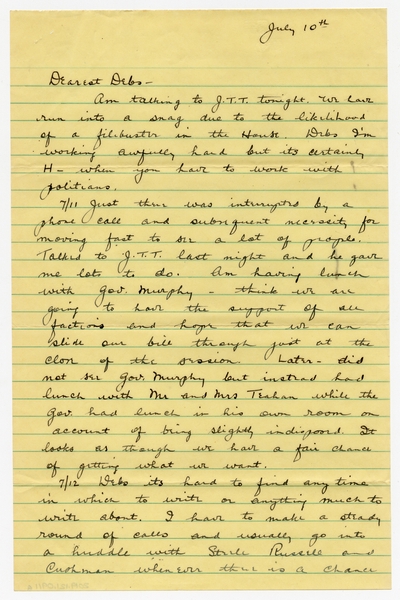 July 10th
Dearest Debs-
Am talking to J.T.T. tonight. We have
run into a snag due to the likelihood
of a filibuster in the House. Debs I'm
working awfully hard but its certainly
H- when you have to work with
politians.
7/11 Just there was interrupted by a
phone call and subsequent necessity for
moving fast to see a lot of people.
Talked to J.T.T. last night and he gave
me lots to do. Am having lunch
with Gov. Murphy - think we are
going to have the support of all
factions and hope that we can
slide our bill through just at the
close of the session. Later- did
not see Gov. Murphy but instead had
lunch with Mr and Mrs Teahan while the
Gov. had lunch in his own room on
account of being slightly indisposed. It
looks as though we have a fair chance
of getting what we want.
7/12 Debs its hard to find any time
in which to write or anything much to
write about. I have to make a steady
round of calls and usually go into
a huddle with Steele Russell and
Cushman whenever there is a chance